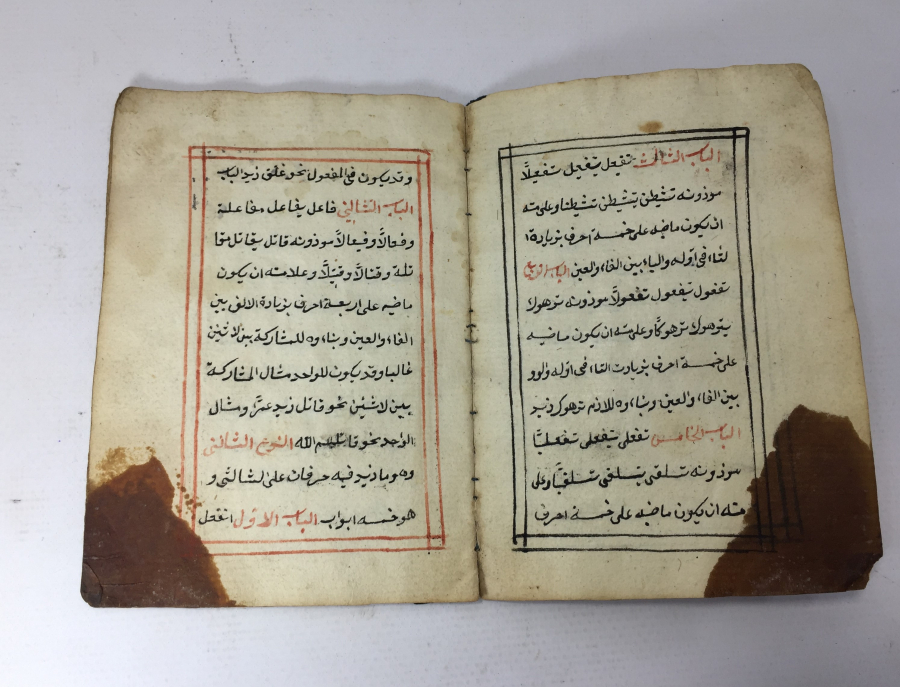 الباب الثالث تفيعل يتفيعل تفيعلاً
موزونه تشيطن يتشيطن تشيطنا وعلامته
ان يكون ماضيه على خمسة احرف بزيادة ا
لتاء في اوله والياء بين الفاء والعين الباب الرابع
تفعول يتفعول تفعولاً موزونه ترهوك
يترهوك ترهوكاً وعلامته ان يكون ماضيه
على خمسة احرف بزيادت التاء في اوله ولوو
بين الفاء والعين وبناءه للازم ترهوك زيد
الباب الخامس تفعلى يتفعلى تفعلياً
موزونه تسلقى يتسلقى تسلقياً وعلا
مته ان يكون ماضيه على خمسة احرف
وقد يكون في المفعول نحو غلق زيد الباب
الباب الثاني فاعل يفاعل مفاعلة
وفعالاً وفيعالاً موزونه قاتل يقاتل مقا
تلة وقتالاً وقيتالاً وعلامته ان يكون
ماضيه على اربعة احرف بزيادة الالف بين
الفاء والعين وبناءه للمشاركة بين لاثنين
غالبا وقد يكون للواحد مثال المشاركة
بين لاثنين نحو قاتل زيد عمرً ومثال
الواحد نحو قاتلهم الله النوع الثاني
وهو ما زيد فيه حرفان على لثالثي و
هو خمسه ابواب الباب الاول انفعل